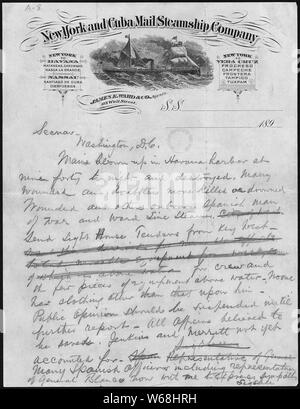 A-8
New York and Cuba Mail Steamship Company
NEW YORK
TO
HAVANA
MATANZAS, CARDENAS
SAGUA LA GRANDE
NEW YORK
TO
NASSAU
SANTIAGO DE CUBA
CIENFUEGOS
NEW YORK
TO
VERA CRUZ
PROGRESO
CAMPECHE
FRONTERA
TAMPICO
TUXPAM
JAMES E. WARD & CO. Agents
113 Wall Street.
S.S.
189
Secnav
Washington, D.C.
Maine blown up in Havana harbor at
nine forty to night and destroyed. Many
wounded and doubtless more killed or drowned
Wounded and others on board Spanish man
of war and Ward Line Steamer.
Send Light House Tenders from Key West
for crew and
the few pieces of equipment above water. No one
has clothing other than that upon him.
Public opinion should be suspended until
further report - All officers believed to
be saved. Jenkins and Merritt not yet
accounted for. Many Spanish officers including representatives
of General Blanco now with me to express sympathy
Sigsbee
alamy
Image ID: W68HRH
www.alamy.com